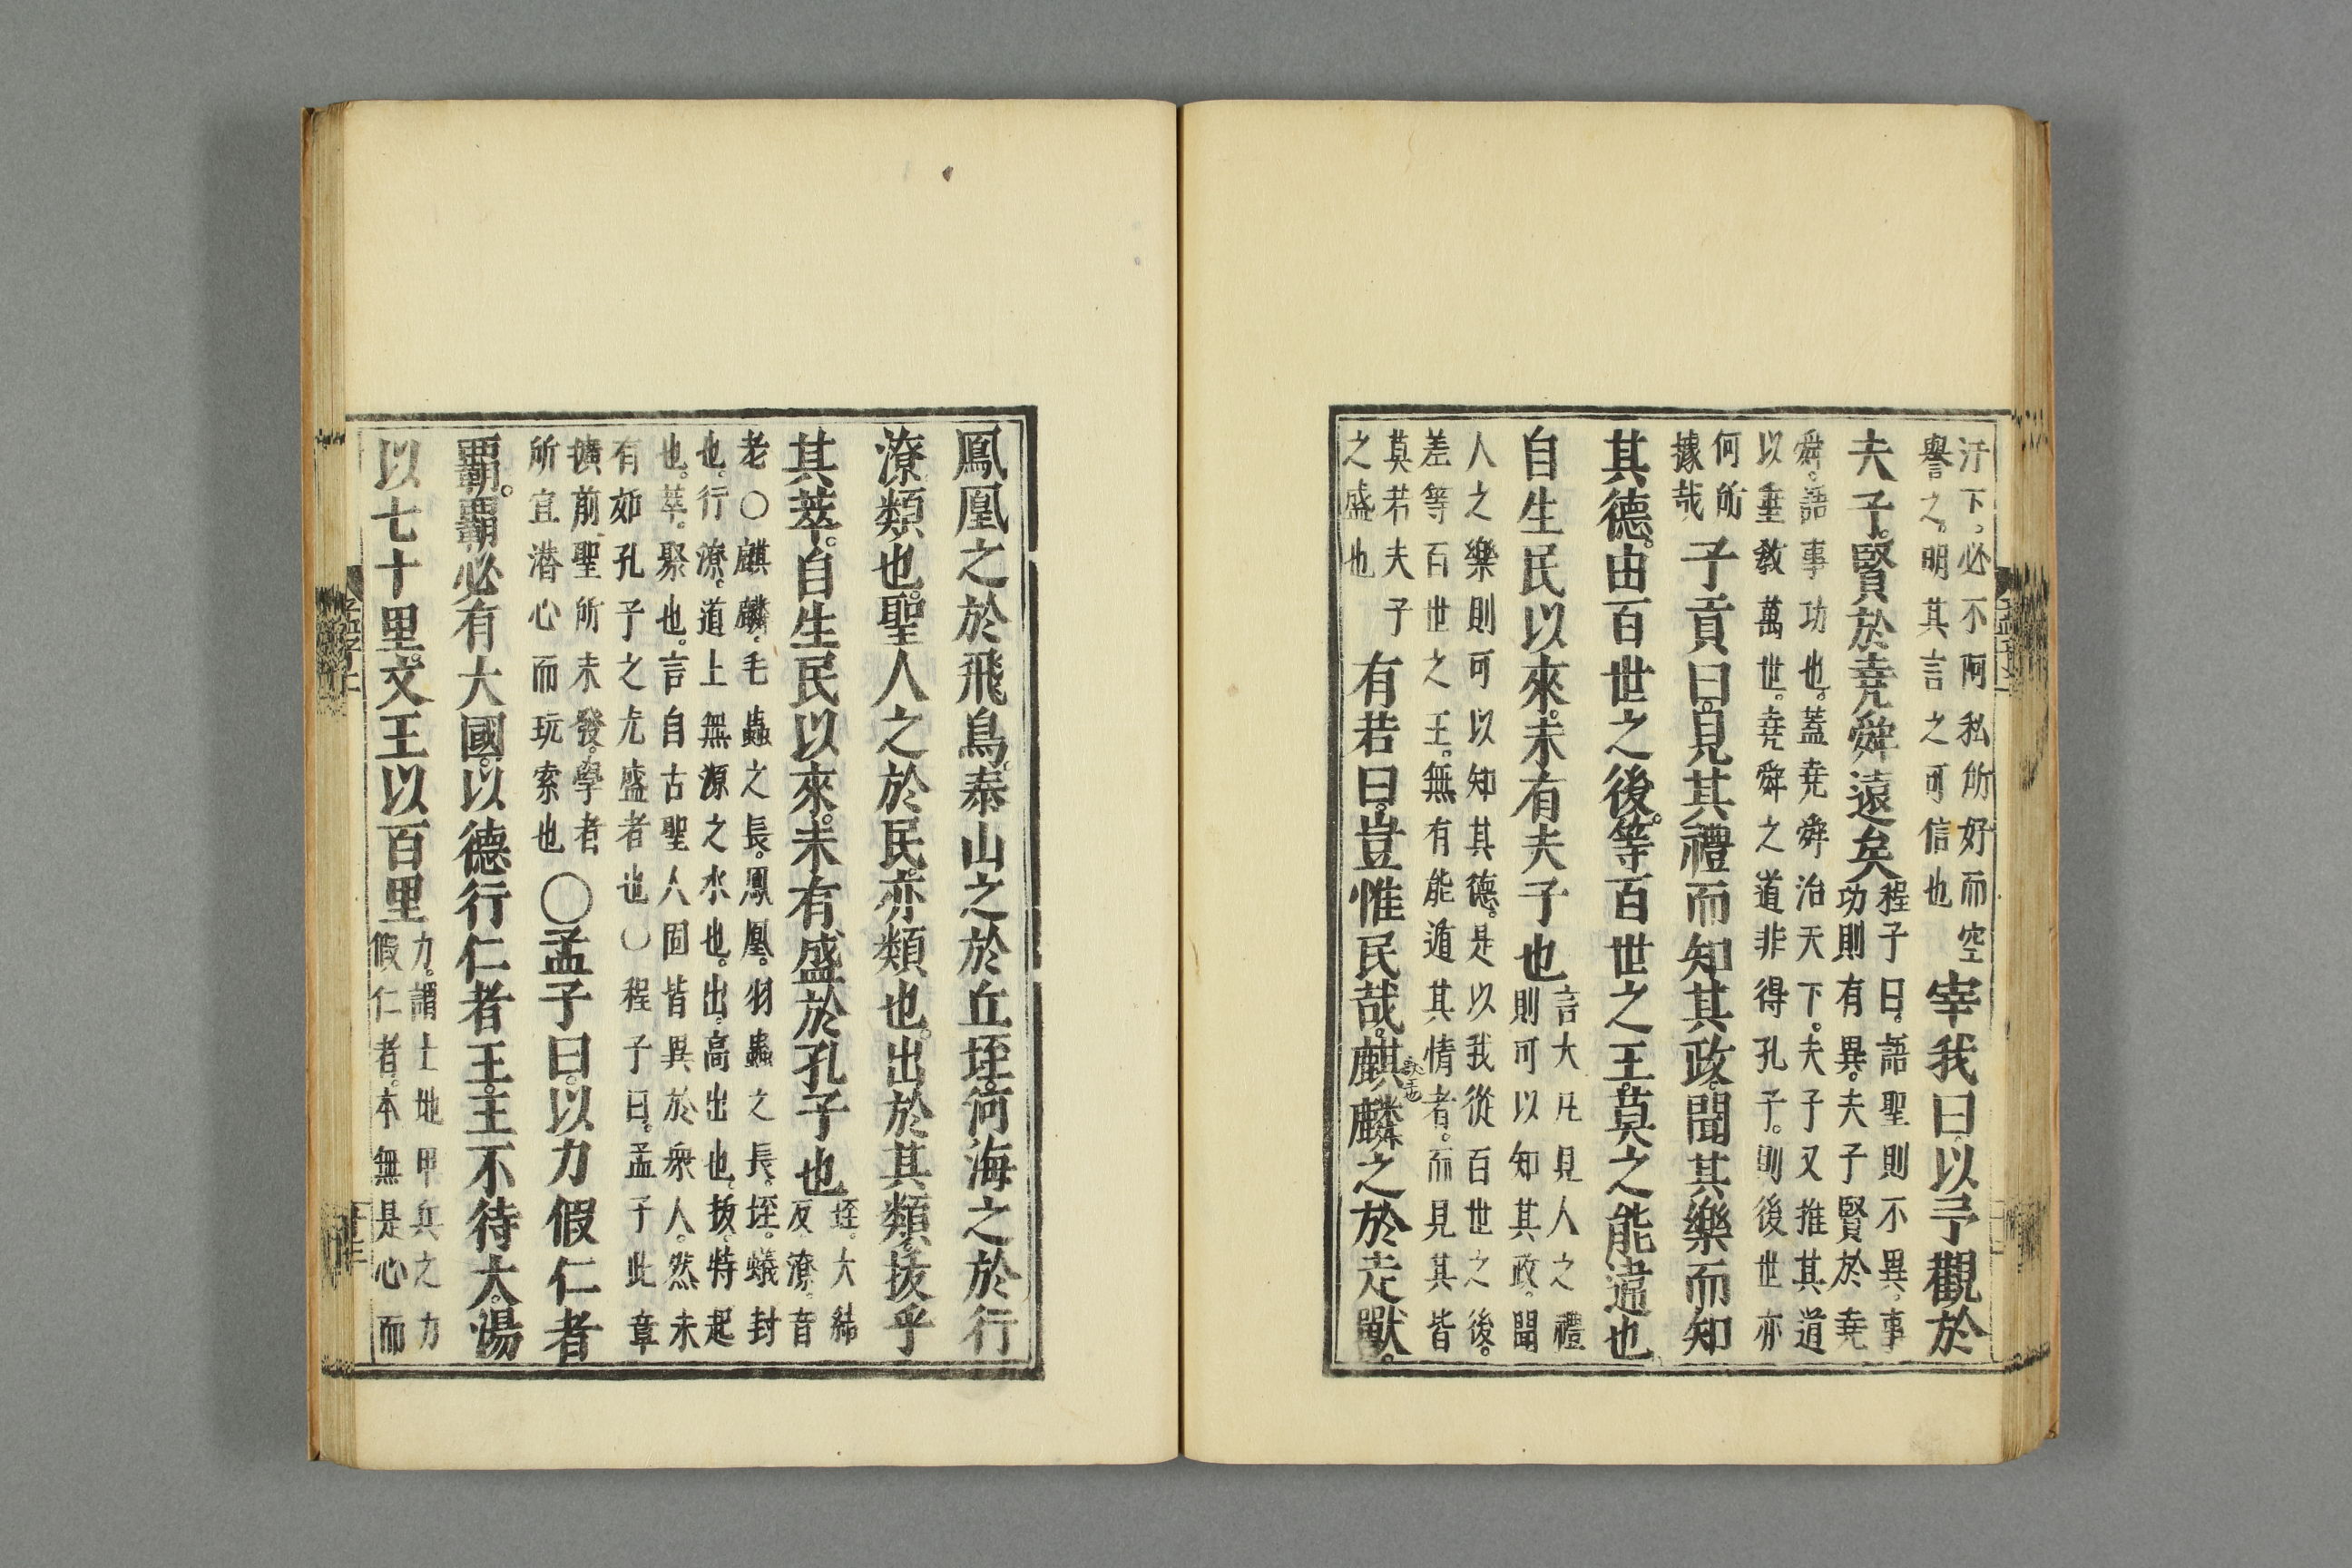 汙下。必不阿私所好而空
譽之。明其言之可信也
宰我曰。以予觀於
夫子。賢於堯舜遠矣
程子曰。語聖則不異。事
功則有異。夫子賢於堯
舜。語事功也。蓋堯舜治天下。夫子又推其道
以垂敎萬世。堯舜之道非得孔子。則後世亦
何所
據哉
子貢曰。見其禮而知其政。聞其樂而知
其德。由百世之後。等百世之王。莫之能違也
自生民以來。未有夫子也
言大凡見人之禮
則可以知其政。聞
人之樂則可以知其德。是以我從百世之後。
差等百世之王。無有能遁其情者。而見其皆
莫若夫子
之盛也
有若曰。豈惟民哉。麒麟之於走獸。
鳳凰之於飛鳥。泰山之於丘垤。河海之於行
潦。類也。聖人之於民。亦類也。出於其類。拔乎
其萃。自生民以來。未有盛於孔子也
垤。大結
反潦。音
老○麒麟。毛蟲之長。鳳凰。羽蟲之長。垤。蟻封
也。行潦。道上無源之水也。出。高出也。拔。特起
也。萃。聚也。言自古聖人固皆異於衆人。然未
有如孔子之尤盛者也○程子曰。孟子此章
擴前聖所未發。學者
所宜潛心而玩索也
○孟子曰。以力假仁者
霸。霸必有大國。以德行仁者王。王不待大。湯
以七十里。文王以百里
力。謂土地甲兵之力
假仁者。本無是心而